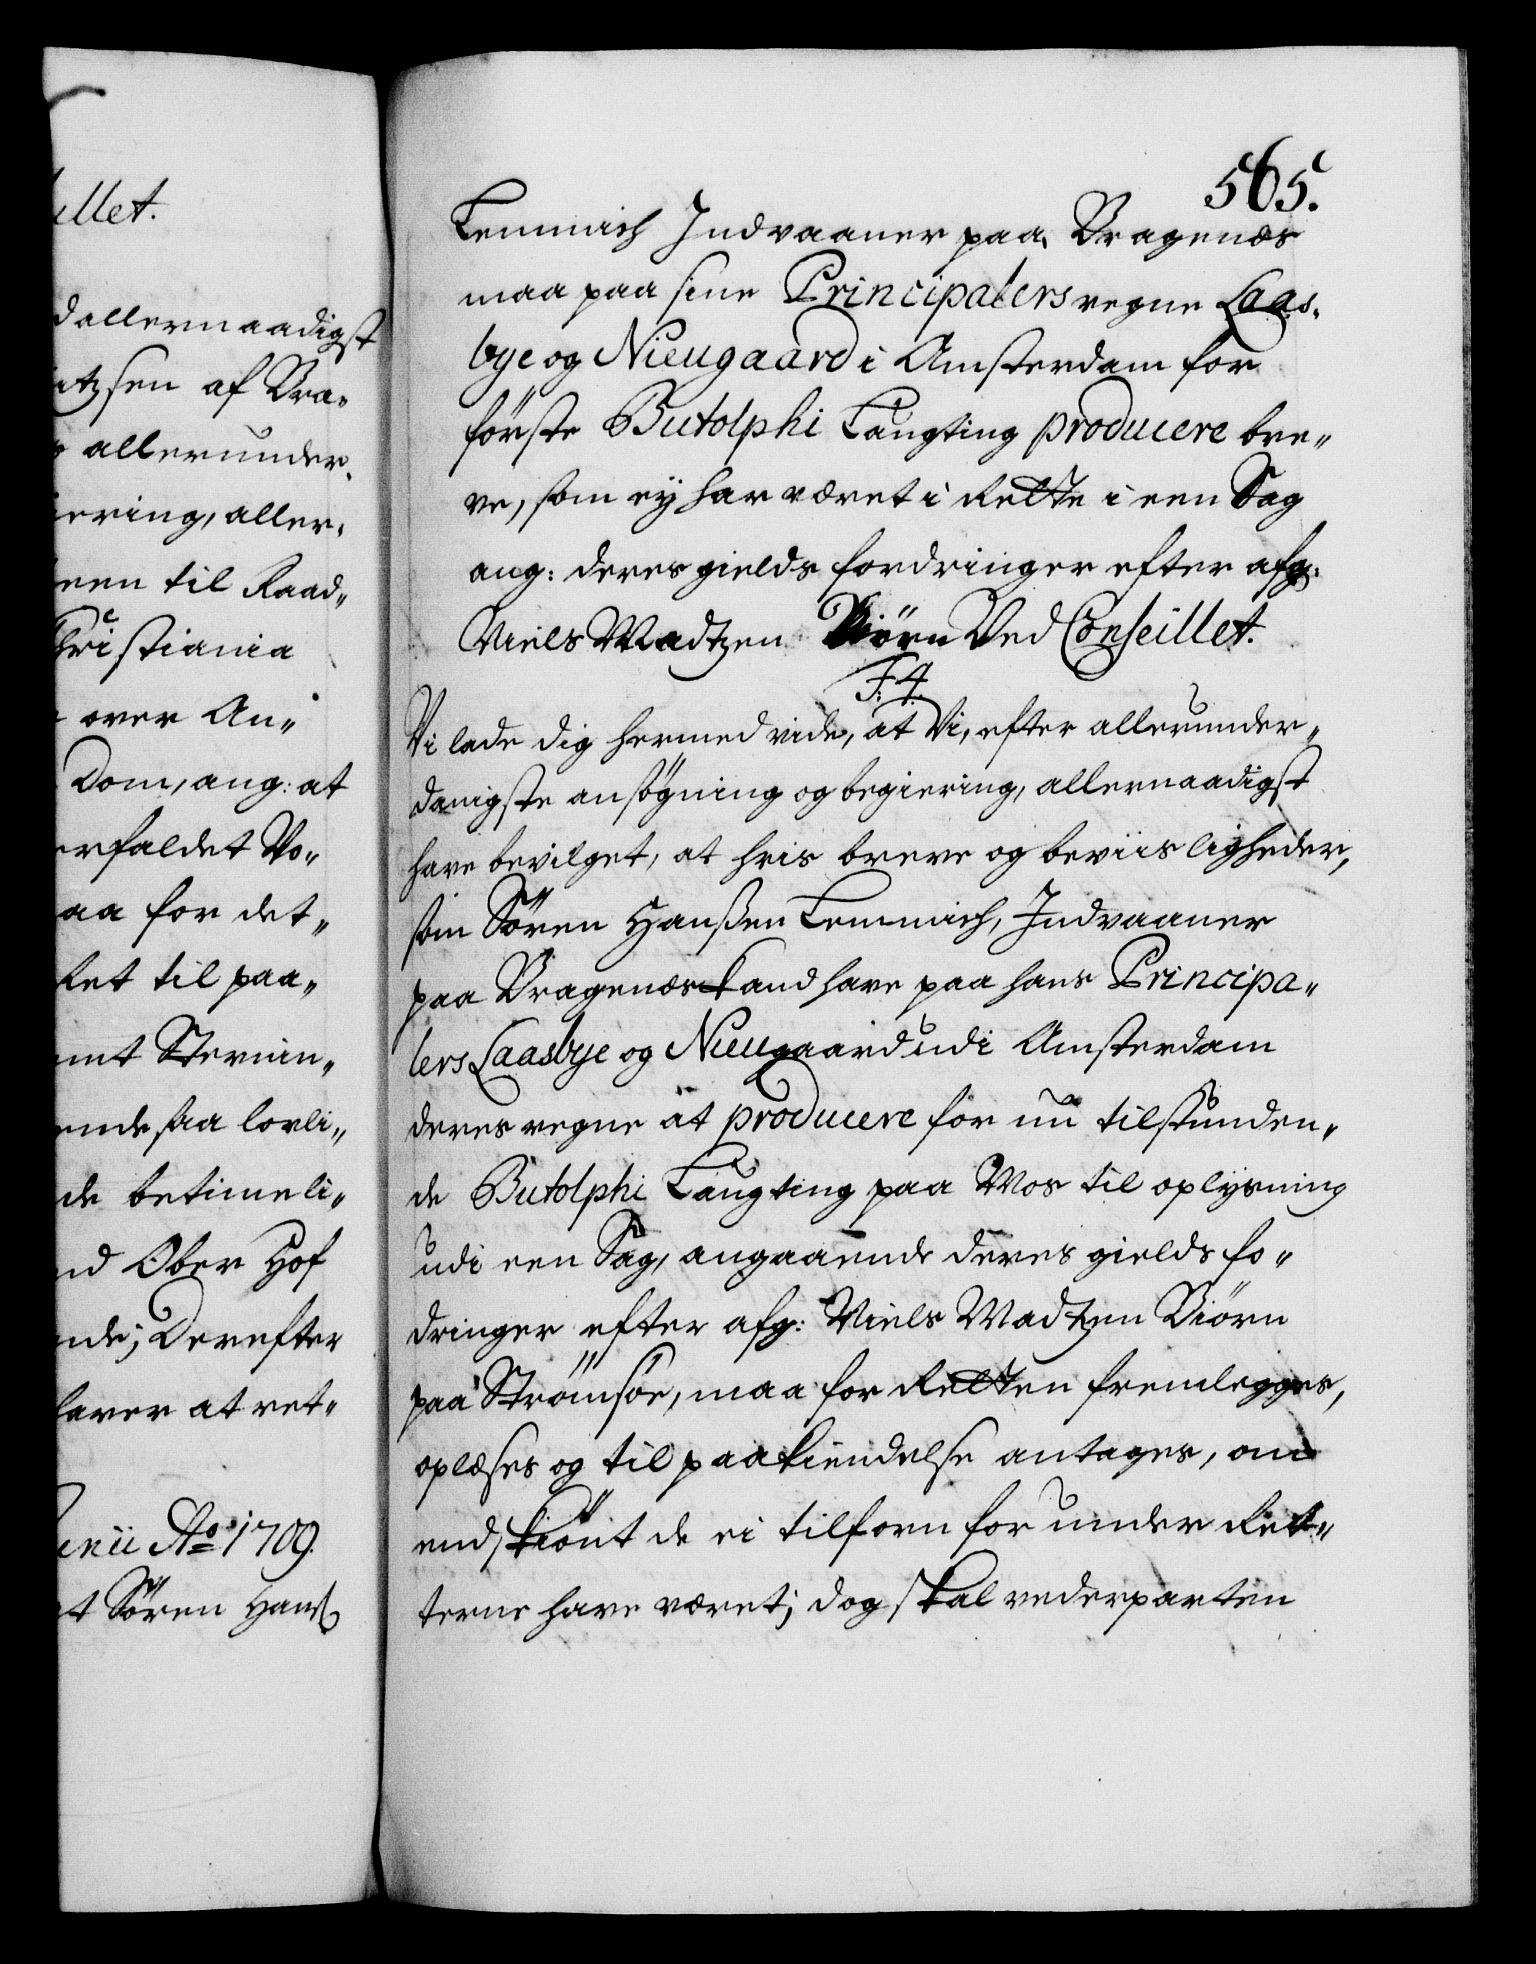 ellet.
dallernaadigst
atzsen af Bra„
allerunder„
iering, aller„
een til Raad„
Christiania
over An„
Dom, ang: at
erfaldet Vo„
aa for det„
let til paa„
mt Steviin„
ende saa lovli„
de betimeli„
nd Ober Hof
nde; Derefter
laver at ret„
Junii Ao 1709.
at Sören Hanß
565.
Lemmich Indvaaner paa Bragenæs
maa paa sine Principalers vegne Laas„
bye og Nieugaard i Amsterdam for
förste Butolphi Laugting producere bre„
ve, som ey har været i Rette i een Sag
ang: deres gields fordringer efter afg:
Niels Madtzen Biörn Ved Conseillet.
F: 4.
Vi lade dig hermed vide, at Vi, efter allerunder„
danigste ansögning og begiering, allernaadigst
have bevilget, at hvis breve og beviisligheder,
som Sören Hanßen Lemmich, Indvaaner
paa Bragenæs kand have paa hans Principa„
lers Laasbye og Nieugaard udi Amsterdam
deres vegne at producere for nu tilstunden„
de Butolphi Laugting paa Mos til oplysning
udi een Sag, angaaende deres gields fo„
dringer efter afg: Niels Madtzen Biörn
paa Strömsöe, maa for Retten fremlegges,
oplæses og til paakiendelse antages, om
end skiönt de ei tilforn for under Ret„
terne have været; dog skal vederparten